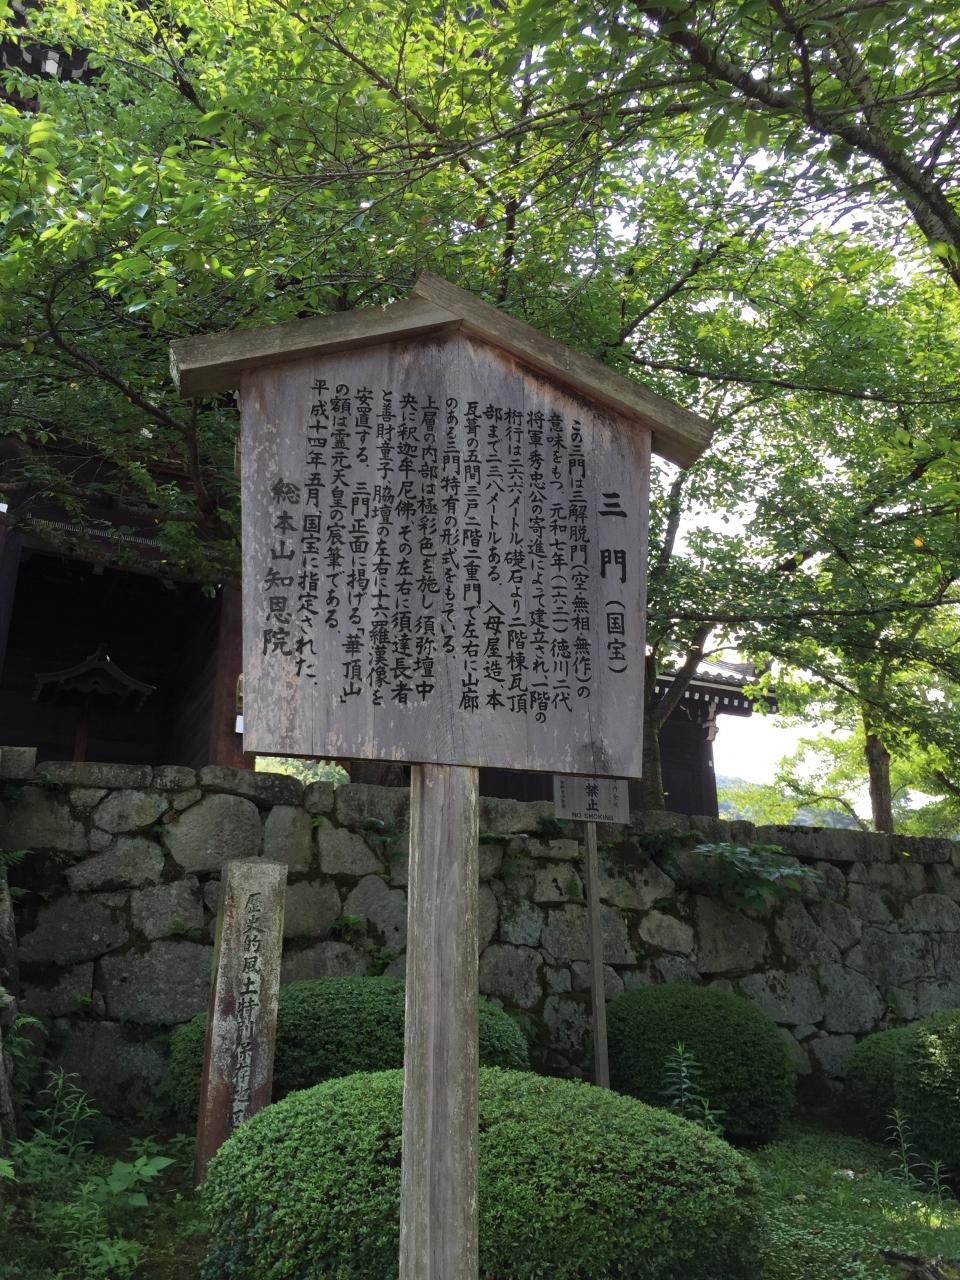 三門（国宝）
この三門は三解脱門（空・無相・無作）の
意味をもつ。元和七年（一六二一）徳川二代
将軍秀忠公の寄進によって建立され一階の
桁行は二六・六メートル礎石より二階棟瓦頂
部まで二三・八メートルある。入母屋造・本
瓦葺の五間三戸二階二重門で左右に山廊
のある三門特有の形式をもている。
上層の内部は極彩色を施し須弥壇中
央に釈迦牟尼佛、その左右に須達長者
と善財童子、脇壇の左右に十六羅漢像を
安置する。三門正面に掲げる「華頂山」
の額は霊元天皇の宸筆である。
平成十四年五月、国宝に指定された。
総本山知恩院
禁止
NO SMOKING
歴史的風土特別保存地区